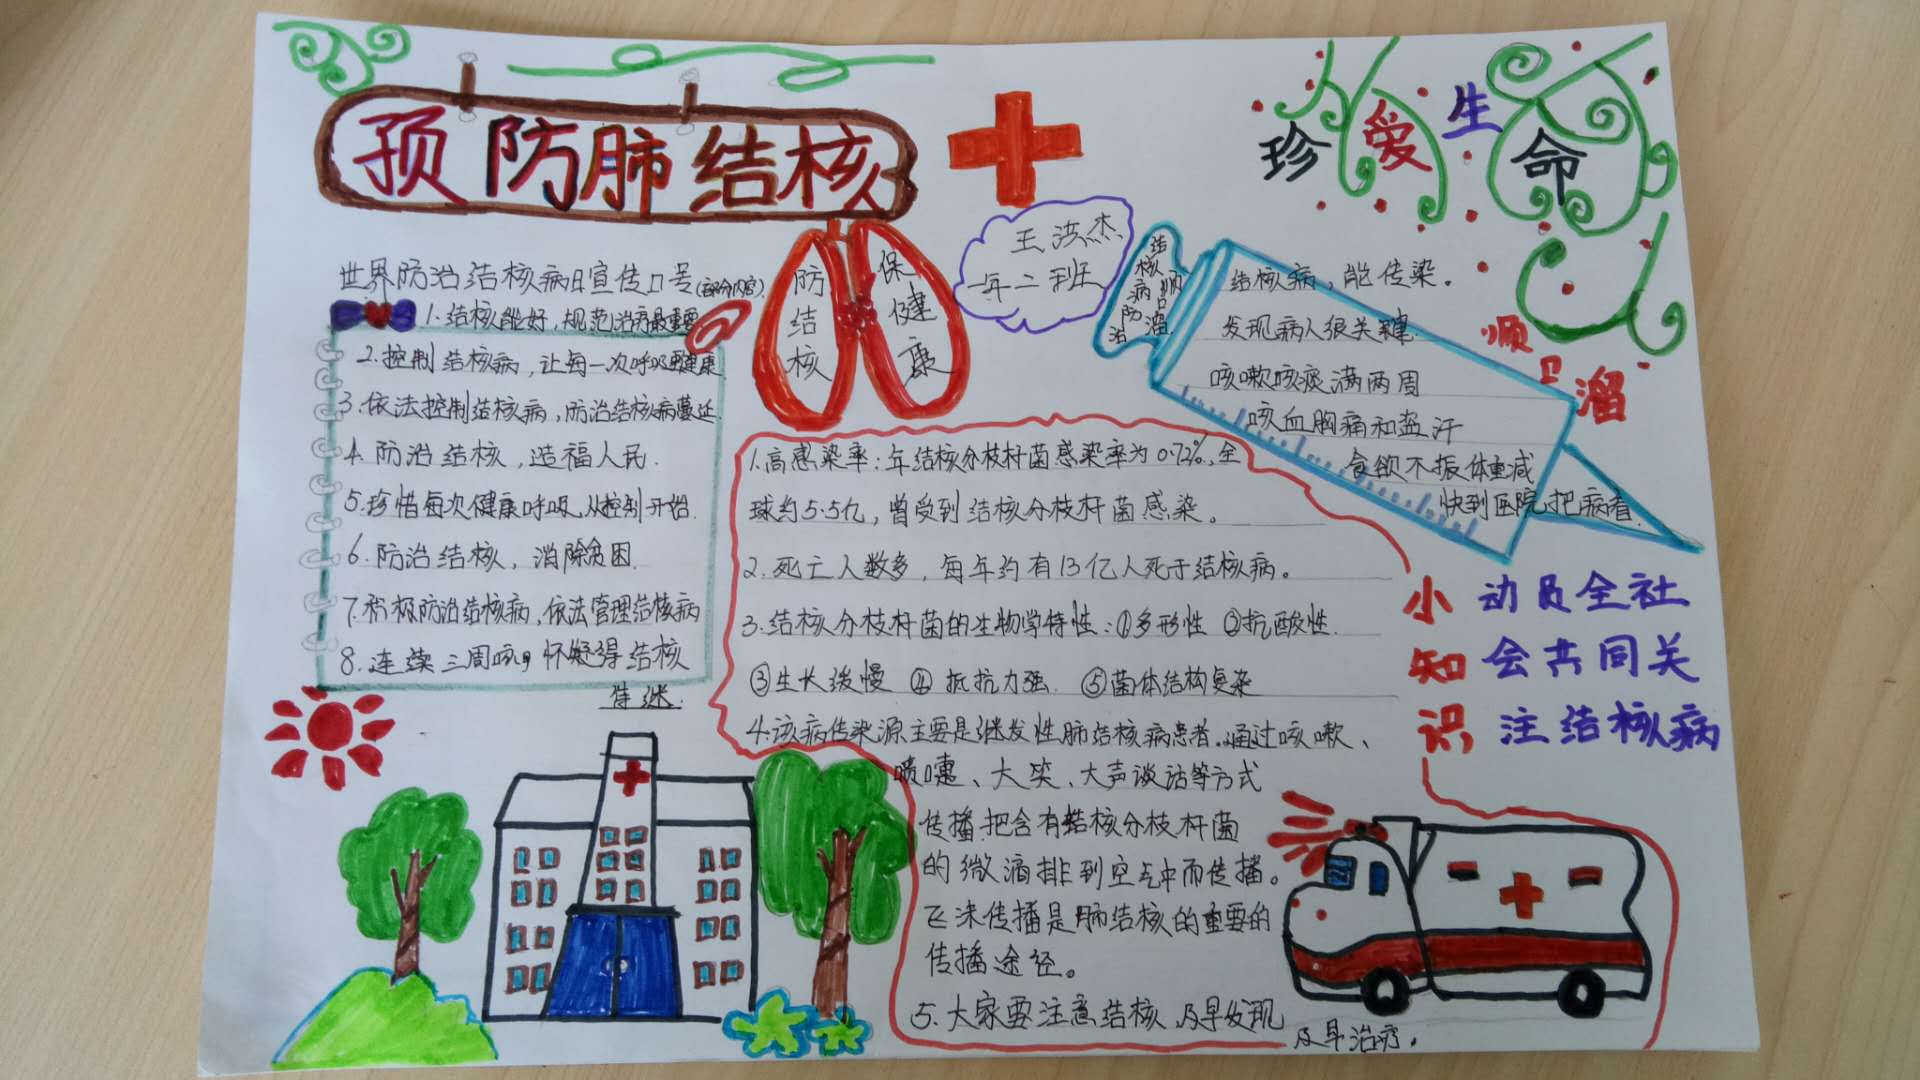 预防肺结核
珍爱生命
王洪杰
一年二班
世界防治结核病日宣传口号(部分内容).
1.结核能好,规范治疗最重要
2.控制结核病,让每一次呼吸更健康
3.依法控制结核病,防治结核病蔓延.
4.防治结核,造福人民.
5.珍惜每次健康呼吸,从控制开始.
6.防治结核,消除贫困.
7.积极防治结核病,依法管理结核病
8.连续三周咳 怀疑得结核
传递.
防结核
保健康
结核病防治
顺口溜
结核病,能传染。
发现病人很关键.
咳嗽咳痰满两周
咳血胸痛和盗汗
食欲不振体重减
快到医院把病看.
顺口溜
1.高感染率:年结核分枝杆菌感染率为0.72%,全
球约5.5亿,曾受到结核分枝杆菌感染。
2.死亡人数多,每年约有13亿人死于结核病。
3.结核分枝杆菌的生物学特性:①多形性 ②抗酸性.
③生长缓慢 ④抵抗力强. ⑤菌体结构复杂
4.该病传染源主要是继发性肺结核病患者.通过咳嗽、
喷嚏、大笑、大声谈话等方式
传播.把含有结核分枝杆菌
的微滴排到空气中而传播。
飞沫传播是肺结核的重要的
传播途径。
5.大家要注意结核,及早发现
及早治疗.
小知识
动员全社
会共同关
注结核病